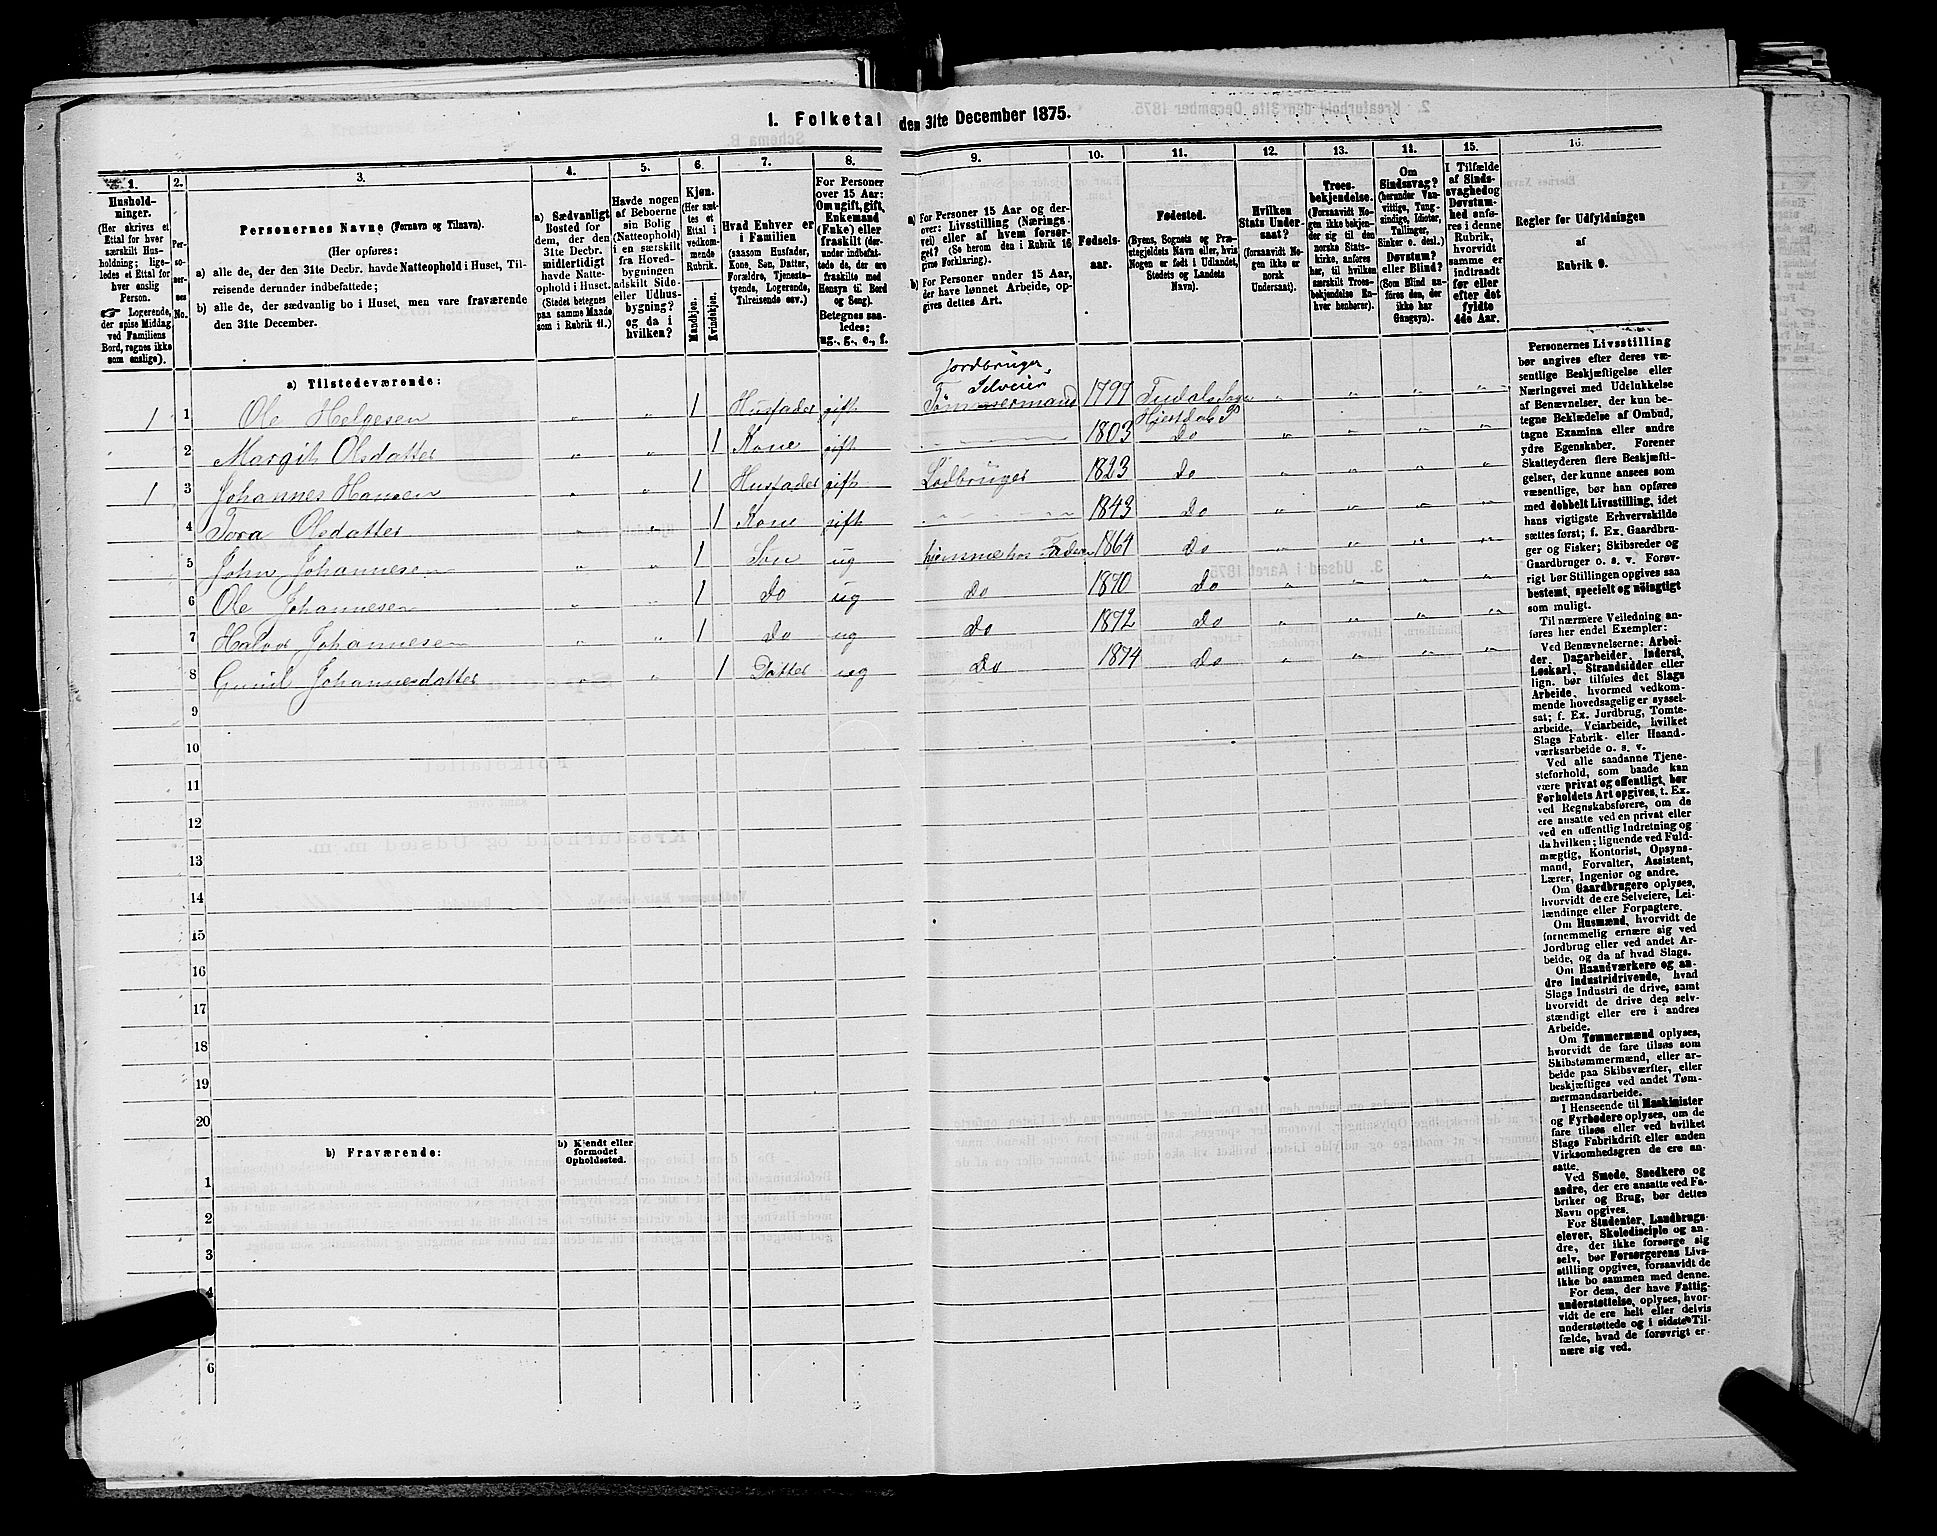 1. Folketal den 31te December 1875.
1.
Husholdninger.
(Her skrives et
Ettal for hver
særskilt Husholdning;
ligeledes et Ettal for
hver enslig
Person.
☞ Logerende,
der spise Middag
ved Familiens
Bord, regnes ikke
som enslige).
2.
Personernes
No.
3.
Personernes Navne (Fornavn og Tilnavn).
(Her opføres:
a) alle de, der den 31te Decbr. havde Natteophold i Huset, Tilreisende derunder indbefattede;
b) alle de, der sædvanlig bo i Huset, men vare fraværende
den 31te December.
4.
a) Sædvanligt
Bosted for
dem, der den
31te Decbr.
midlertidigt
havde Natteophold i Huset.
(Stedet betegnes
paa samme Maade
som i Rubrik 11.)
5.
Havde nogen
af Beboerne
sin Bolig
(Natteophold)
i en særskilt
fra Hovedbygningen
adskilt Side-
eller Udhusbygning?
og da i
hvilken?
6.
Kjøn.
(Her sættes et
Ettal i
vedkommende
Rubrik.
Mandkjøn.
Kvindekjøn.
7.
Hvad Enhver er
i Familien
(saasom Husfader,
Kone, Søn, Datter,
Forældre, Tjenestetyende, Logerende,
Tilreisende osv.)
8.
For Personer
over 15 Aar:
Om ugift, gift,
Enkemand
(Enke) eller
fraskilt (derunder indbefattede de, der ere
fraskilte med
Hensyn til Bord
og Seng).
Betegnes saaledes:
ug., g., e., f.
9.
a) For Personer 15 Aar og derover: Livsstilling (Næringsvei) eller af hvem forsørget? (Se herom den i Rubrik 16
givne Forklaring).
b) For Personer under 15 Aar,
der have lønnet Arbeide, opgives dettes Art.
10.
Fødselsaar.
11.
Fødested.
(Byens, Sognets og Præstegjeldets Navn eller, hvis
Nogen er født i Udlandet,
Stedets og Landets
Navn).
12.
Hvilken
Stats Undersaat?
(forsaavidt Nogen ikke er
norsk
Undersaat).
13.
Troesbekjendelse.
(Forsaavidt Nogen ikke bekjender sig til den
norske Statskirke, anføres
her, til hvilken
særskilt Troesbekjendelse Enhver henhører).
14.
Om
Sindssvag?
(herunder Vanvittige, Tungsindige, Idioter,
Tullinger,
Sinker o. desl.)
Døvstum?
eller Blind?
(Som Blind anføres den, der
ikke har
Gangsyn).
15.
I Tilfælde
af Sindssvaghed og
Døvstumhed anføres i denne
Rubrik,
hvorvidt
samme er
indtraadt
før eller
efter det
fyldte
4de Aar.
16.
Regler for Udfyldningen
af
Rubrik 9.
a) Tilstedeværende:
1 1 Ole Helgesen „ „ 1 Husfader gift Jordbruger, Selveier Tømmermand 1797 Tudals Sogn Hjertdals P „ „ „ „
2 Margit Olsdatter „ „ 1 Kone gift 1803 Do „ „ „ „
1 3 Johannes Hansen „ „ 1 Husfader gift 1823 Do „ „ „ „
4 Tora Olsdatter „ „ 1 Kone gift 1843 Do „ „ „ „
5 John Johannesen „ „ 1 Søn ug hjemme hos Faderen 1864 Do „ „ „ „
6 Ole Johannesen „ „ 1 Do ug Do 1870 Do „ „ „ „
7 Halvor Johannesen „ „ 1 Do ug Do 1872 Do „ „ „ „
8 Gunil Johannesdatter „ „ 1 Datter ug Do 1874 Do „ „ „ „
9
10
11
12
13
14
15
16
17
18
19
20
b) Fraværende:
b) Kjendt eller
formodet
Opholdssted.
1
2
3
4
6
Personernes Livsstilling
bør angives efter deres væsentlige Beskjæftigelse eller
Næringsvei med Udelukkelse
af Benævnelser, der kun betegne Beklædelse af Ombud,
tagne Examina eller andre
ydre Egenskaber. Forener
Skatteyderen flere Beskjæftigelser, der kunne ansees som
væsentlige, bør han opføres
med dobbelt Livsstilling, idet
hans vigtigste Erhvervskilde
sættes først; f. Ex. Gaardbruger og Fisker; Skibsreder og
Gaardbruger o. s. v. Forøvrigt bør Stillingen opgives saa
bestemt, specielt og nøiagtigt
som muligt.
Til nærmere Veiledning anføres her endel Exempler:
Ved Benævnelserne: Arbeider, Dagarbeider, Inderst,
Løskarl, Strandsidder eller
lign. bør tilføies det Slags
Arbeide, hvormed vedkommende hovedsagelig er sysselsat; f. Ex. Jordbrug, Tomtearbeide, Veiarbeide, hvilket
Slags Fabrik- eller Haandværksarbeide o. s. v.
Ved alle saadanne Tjenesteforhold, som baade kan
være privat og offentligt, bør
Forholdets Art opgives, t. Ex.
ved Regnskabsførere, om de
ere ansatte ved en privat eller
ved en offentlig Indretning og
da hvilken; lignende ved Fuldmægtig, Kontorist, Opsynsmand, Forvalter, Assistent,
Lærer, Ingeniør og andre.
Om Gaardbrugere oplyses,
hvorvidt de ere Selveiere, Leilændinge eller Forpagtere.
Om Husmænd, hvorvidt de
fornemmelig ernære sig ved
Jordbrug eller ved andet Arbeide, og da af hvad Slags.
Om Haandværkere og andre Industridrivende, hvad
Slags Industri de drive, samt
hvorvidt de drive den selvstændigt eller ere i andres
Arbeide.
Om Tømmermænd oplyses,
hvorvidt de fare tilsøs som
Skibstømmermænd, eller arbeide paa Skibsværfter, eller
beskjæftiges ved andet Tømmermandsarbeide.
I Henseende til Maskinister
og Fyrbødere oplyses, om de
fare tilsøs eller ved hvilket
Slags Fabrikdrift eller anden
Virksomhedsgren de ere ansatte.
Ved Smede, Snedkere og
andre, der ere ansatte ved Fabriker og Brug, bør dettes
Navn opgives.
For Studenter, Landbrugselever, Skoledisciple og andre, der ikke forsørge sig
selv, bør Forsørgerens Livsstilling opgives, forsaavidt de
ikke bo sammen med denne.
For dem, der have Fattigunderstøttelse, oplyses, hvorvidt de ere helt eller delvis
understøttede og i sidste Tilfælde, hvad de forøvrigt ernære sig ved.